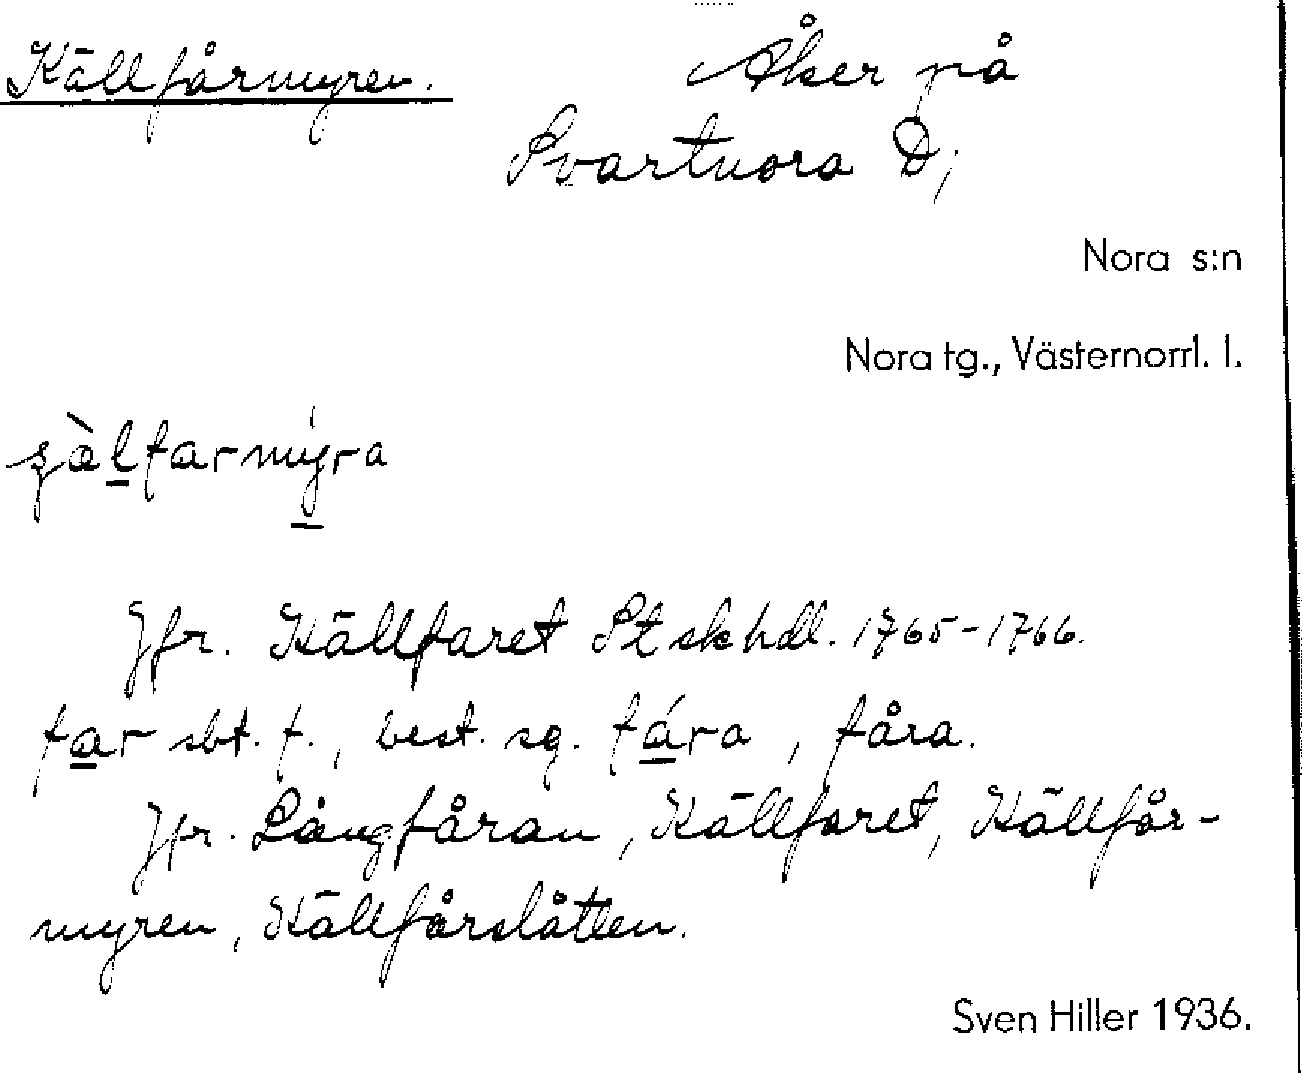 Källfårmyren. Åker på
Svartnora D;
Nora s:n
Nora tg., Västernorrl. l.
Jfr. Källfaret St sk hdl. 1765-1766.
far sbt. f., best. sg. fára, fåra.
Jfr. Långfåran, Källfaret, Källfår-
myren, Källfårslåtten.
Sven Hiller 1936.